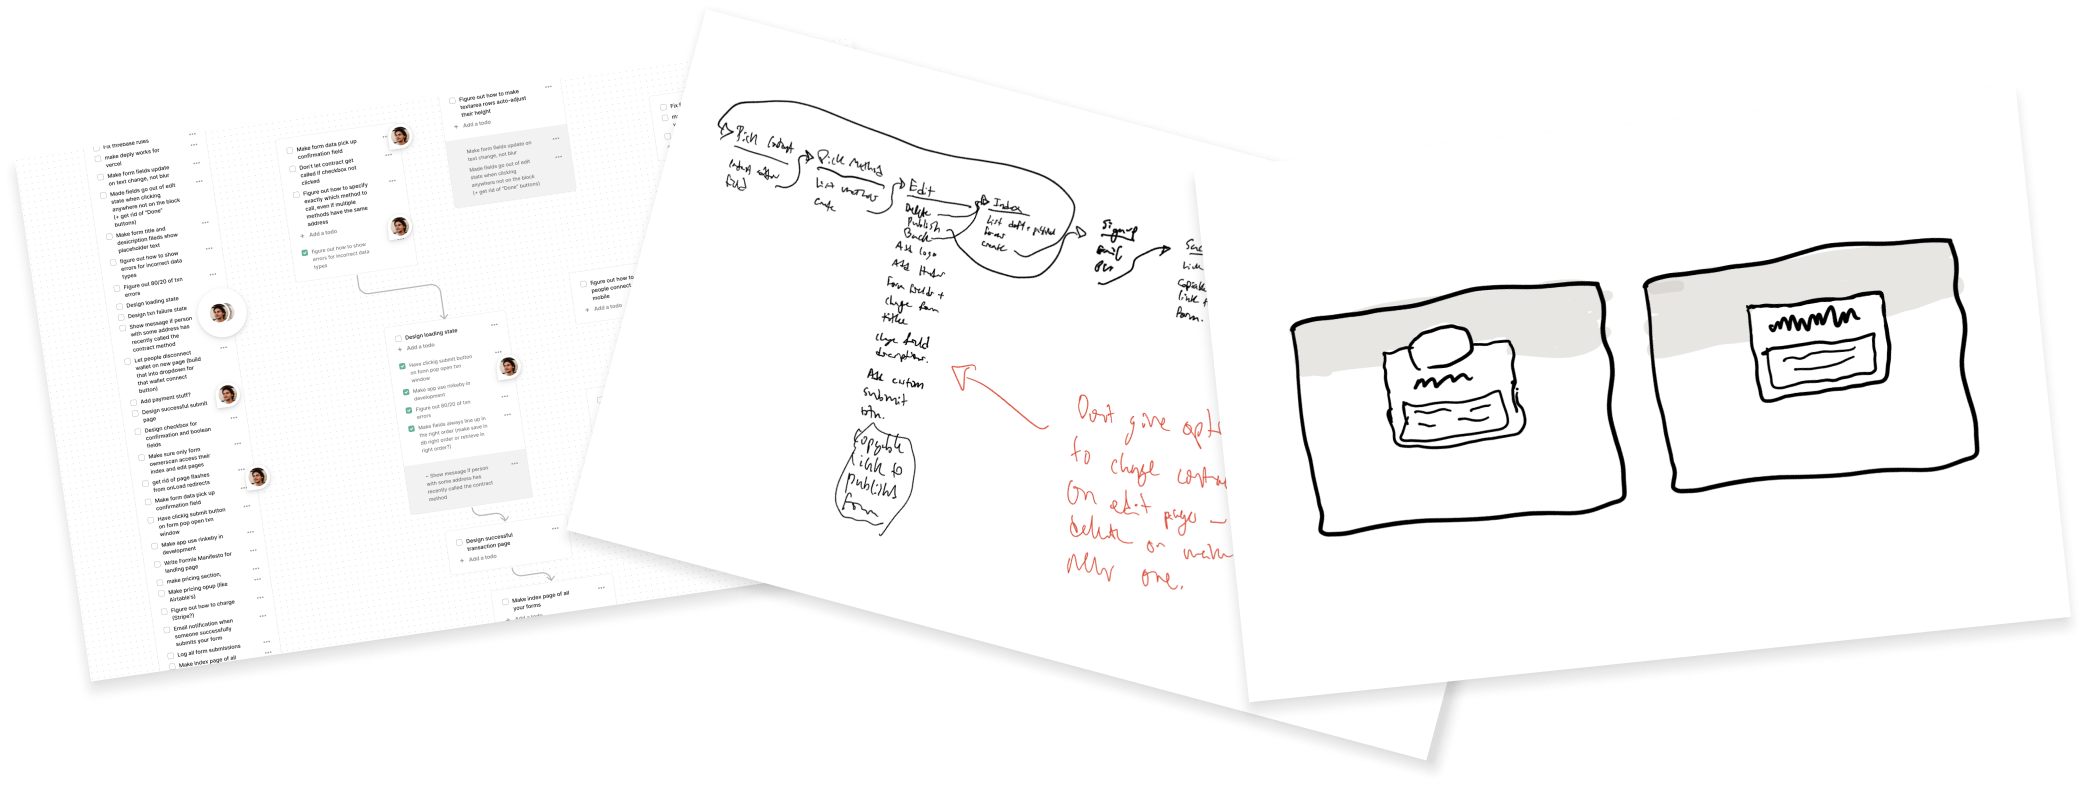 Fix firebase rules
make deply works for
vercel
Make form fields update
on text change, not blur
Made fields go out of edit
state when clicking
anywhere not on the block
(+ get rid of "Done"
buttons)
Make form title and
description fileds show
placeholder text
figure out how to show
errors for incorrect data
types
Figure out 80/20 of txn
errors
Design loading state
Design txn failure state
Show message if person
with some address has
recently called the
contract method
Let people disconnect
wallet on new page (build
that into dropdown for
that wallet connect
button)
Add payment stuff?
Design successful submit
page
Design checkbox for
confirmation and boolean
fields
Make sure only form
ownerscan access their
index and edit pages
get rid of page flashes
from onLoad redirects
Make form data pick up
confirmation field
Have clickig submit button
on form pop open txn
window
Make app use rinkeby in
development
Write Formie Manifesto for
landing page
make pricing section,
Make pricing opup (like
Airtable's)
Figure out how to charge
(Stripe?)
Email notification when
someone successfully
submits your form
Log all form submissions
Make index page of all
Make form data pick up
confirmation field
Don't let contract get
called if checkbox not
clicked
Figure out how to specify
exactly which method to
call, even if multiple
methods have the same
address
+ Add a todo
figure out how to show
errors for incorrect data
types
Figure out how to make
textarea rows auto-adjust
their height
+ Add a todo
Make form fields update on
text change, not blur
Made fields go out of edit
state when clicking
anywhere not on the block
(+ get rid of "Done" buttons)
Fix
figure out how to
people connect
mobile
+ Add a todo
Design loading state
+ Add a todo
Have clickig submit button
on form pop open txn
window
Make app use rinkeby in
development
Figure out 80/20 of txn
errors
Make fields always line up in
the right order (make save in
db right order or retrieve in
right order?)
~ Show message if person
with some address has
recently called the contract
method
Design successful
transaction page
+ Add a todo
Make index page of all
your forms
+ Add a todo
Pick Contract
field
Pick Method
List methods
Edit
Delete
Publish
Back
Add logo
Add Header
Form fields +
change form
title
change field
descriptions.
Add custom
submit
btn.
Copyable
link to
publish
form
Index
List draft + published
forms
create
Signup
Email
Link
link +
form.
Don't give opti
to change contra
on edit page —
delete or make
new one.